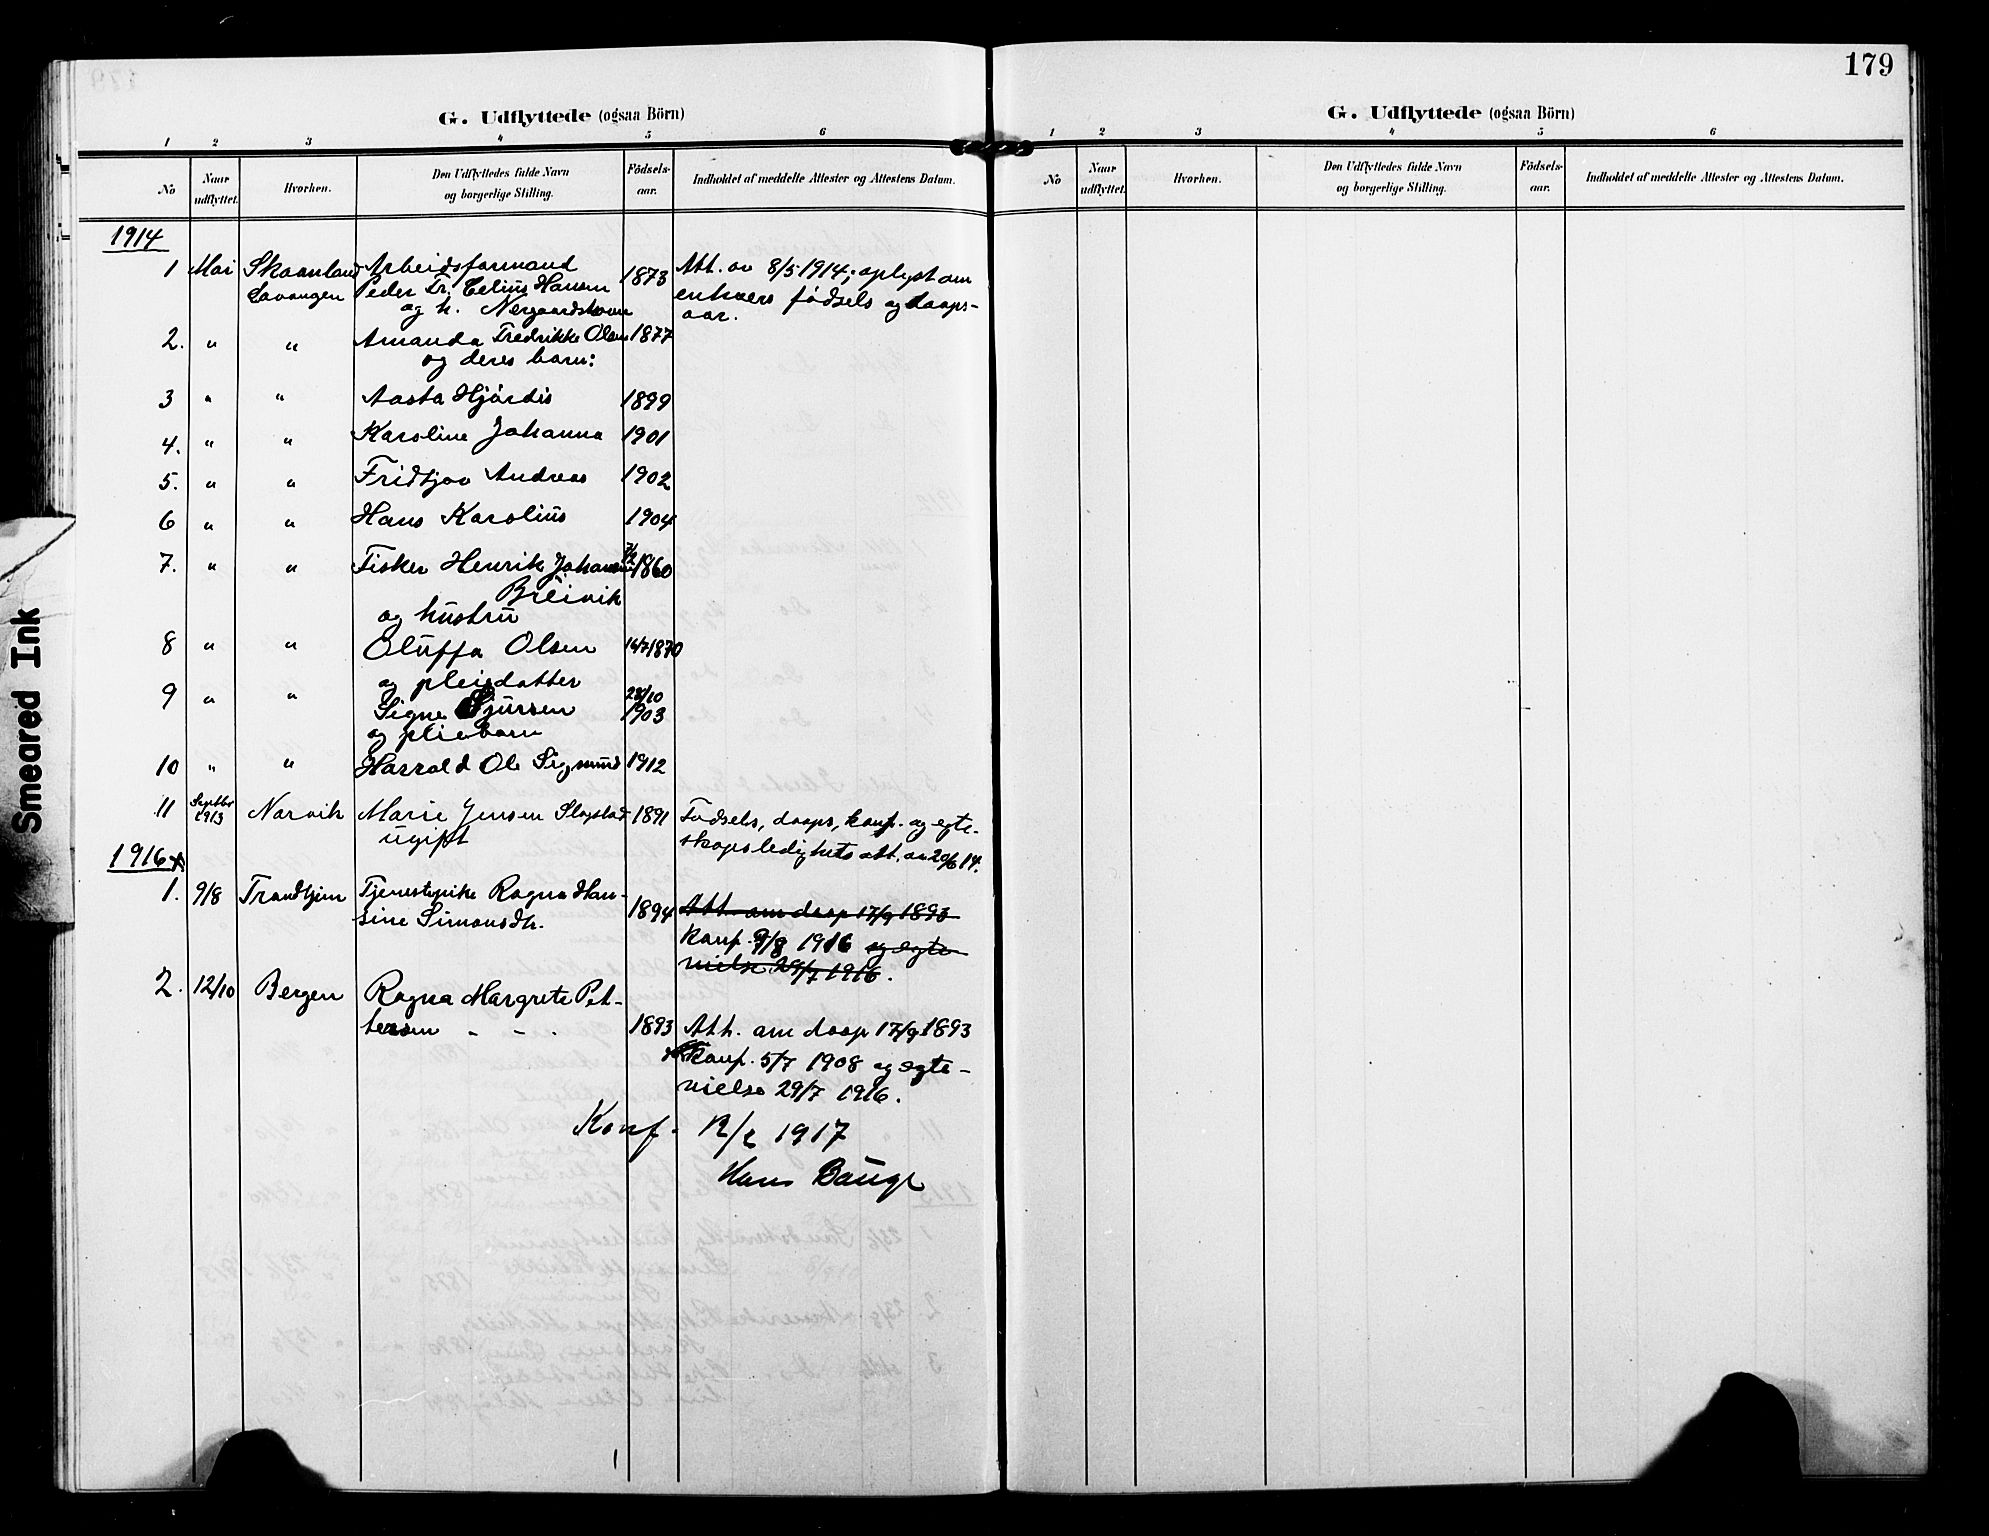 179
G. Udflyttede (ogsaa Börn)
1 2 3 4 5 6
No Naar udflyttet. Hvorhen. Den Udflyttedes fulde Navn og borgerlige Stilling. Födsels-aar. Indholdet af meddelte Attester og Attestens Datum.
1914
1 Mai Skaanland Arbeidsformand 1873 Att. av 8/5 1914; oplyst om
Lavangen Peder Fr. Celius Hansen enhvers fødsels og daaps-
og h. aar.
2. " " Amanda Fredrikke Olsen 1877
og deres barn:
3 " " Aasta Hjördis 1899
4. " " Karoline Johanna 1901
5. " " Fridtjov Andreas 1902
6 " " Hans Karolius 1904
7. " " Fisker Henrik Johansen 1860
Breivik
og hustru
8 " " Oluffa Olsen 14/7 1870
og pleiedatter
9 " " Signe Sjursen 28/10 1903
og pleiebarn
10 " " Harrald Ole Sigmund 1912
11 Septbr 1913 Narvik Marie Jensen Slogstad 1891 Fødsels, daaps, konf. og egte-
ugift skapsledighets att. av 20/6 14.
1916
1. 9/8 Trondhjem Tjenestepike Ragna Han- 1894 Att. om daap 17/9 1893
sine Simonsdtr. konf. 9/8 1916 og egte-
vielse 29/7 1916.
2. 12/10 Bergen Ragna Margrete Pet-
tersen - - . 1893 Att. om daap 17/9 1893
konf. 5/7 1908 og egte-
vielse 29/7 1916.
Konf. 12/2 1917
Hans Bauge
G. Udflyttede (ogsaa Börn)
1 2 3 4 5 6
No Naar udflyttet. Hvorhen. Den Udflyttedes fulde Navn og borgerlige Stilling. Födsels-aar. Indholdet af meddelte Attester og Attestens Datum.
Smeared Ink